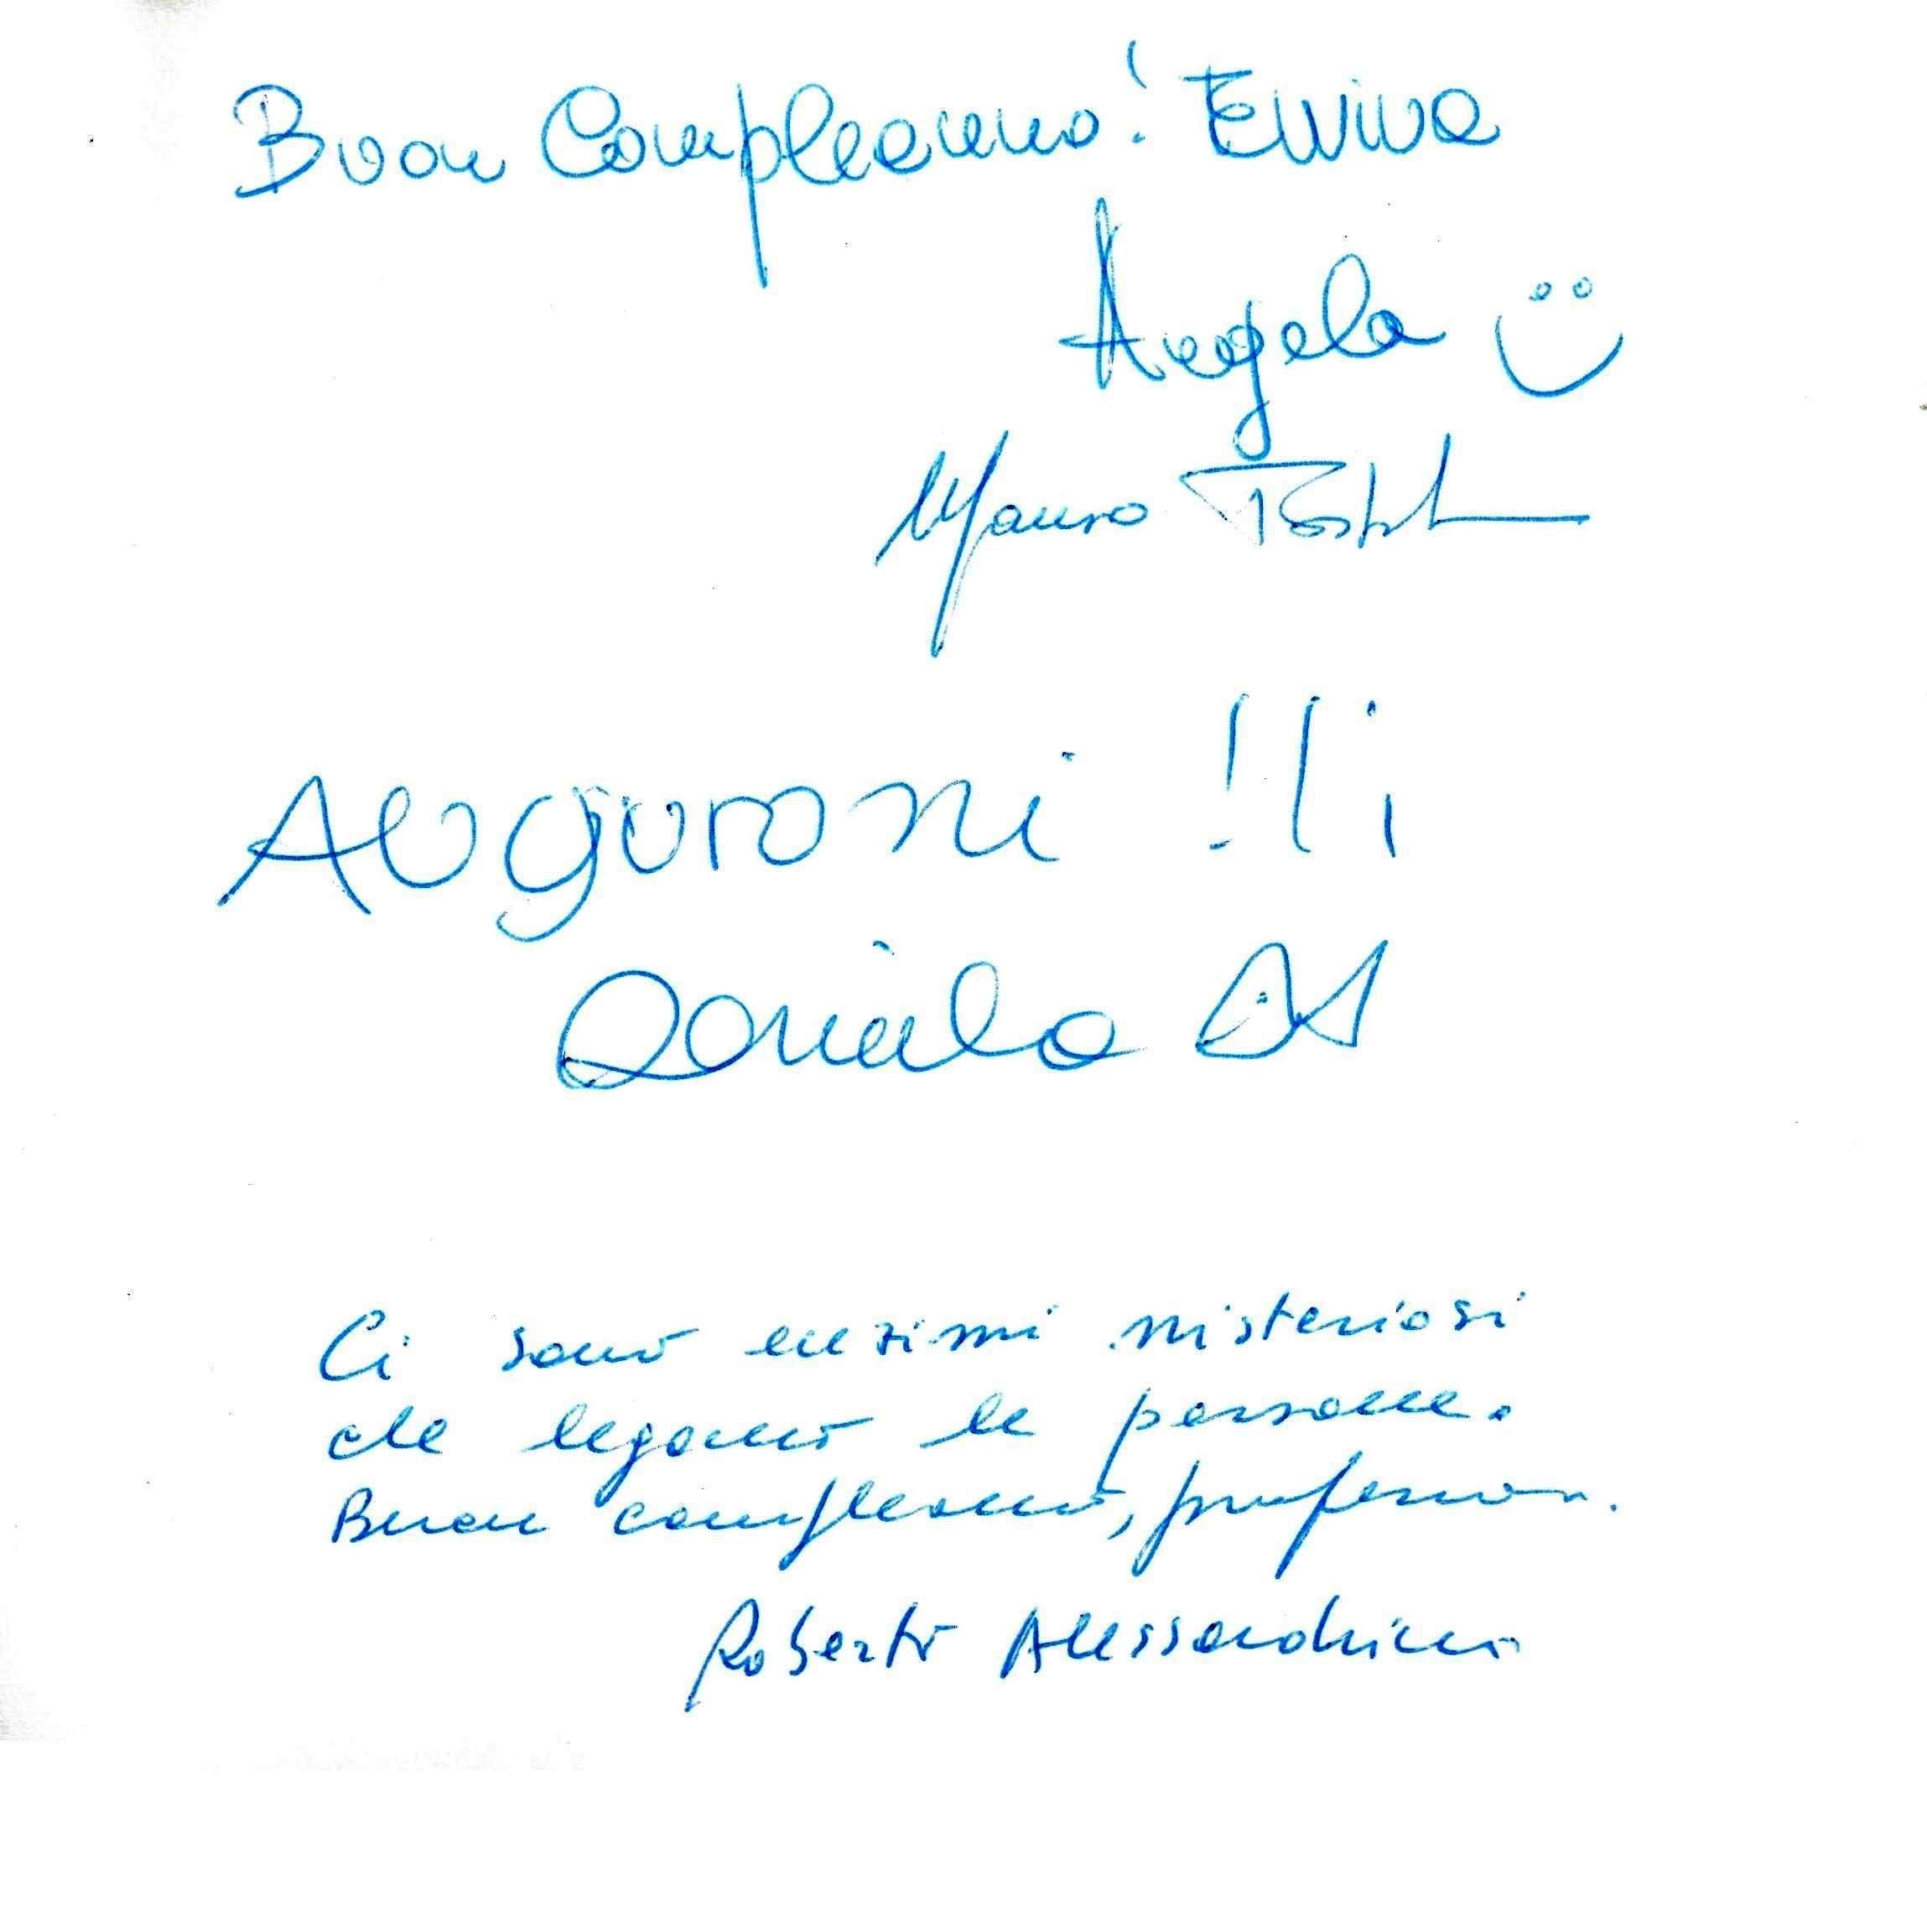 Buon Compleanno! Evviva
Angela
Mauro
Auguroni !!¡
Ci sono enzimi misteriosi
che legano le persone.
Buon compleanno, professor.
Roberto Alessandrini